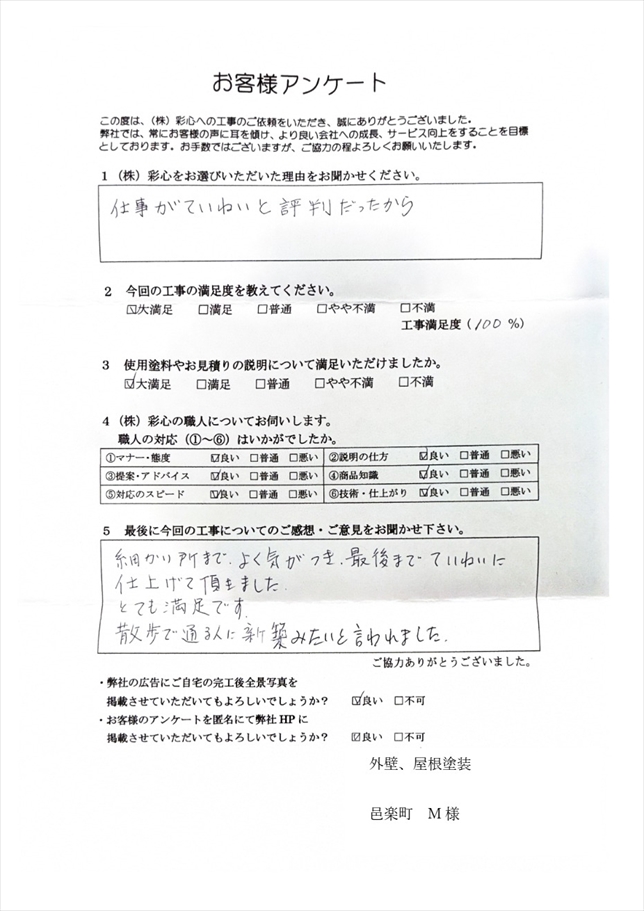 お客様アンケート
この度は、（株）彩心への工事のご依頼をいただき、誠にありがとうございました。
弊社では、常にお客様の声に耳を傾け、より良い会社への成長、サービス向上をすることを目標
としております。お手数ではございますが、ご協力の程よろしくお願いいたします。
1（株）彩心をお選びいただいた理由をお聞かせください。
仕事がていねいと評判だったから
2 今回の工事の満足度を教えてください。
☑大満足 □満足 □普通 □やや不満 □不満
工事満足度（100 %）
3 使用塗料やお見積りの説明について満足いただけましたか。
☑大満足 □満足 □普通 □やや不満 □不満
4（株）彩心の職人についてお伺いします。
職人の対応（①～⑥）はいかがでしたか。
①マナー・態度 ☑良い □普通 □悪い ②説明の仕方 ☑良い □普通 □悪い
③提案・アドバイス ☑良い □普通 □悪い ④商品知識 ☑良い □普通 □悪い
⑤対応のスピード ☑良い □普通 □悪い ⑥技術・仕上がり ☑良い □普通 □悪い
5 最後に今回の工事についてのご感想・ご意見をお聞かせ下さい。
細かい所まで、よく気がつき、最後まで ていねいに
仕上げて頂きました。
とても満足です。
散歩で通る人に新築みたいと言われました。
ご協力ありがとうございました。
・弊社の広告にご自宅の完工後全景写真を
掲載させていただいてもよろしいでしょうか？ ☑良い □不可
・お客様のアンケートを匿名にて弊社HPに
掲載させていただいてもよろしいでしょうか？ ☑良い □不可
外壁、屋根塗装
邑楽町 M様